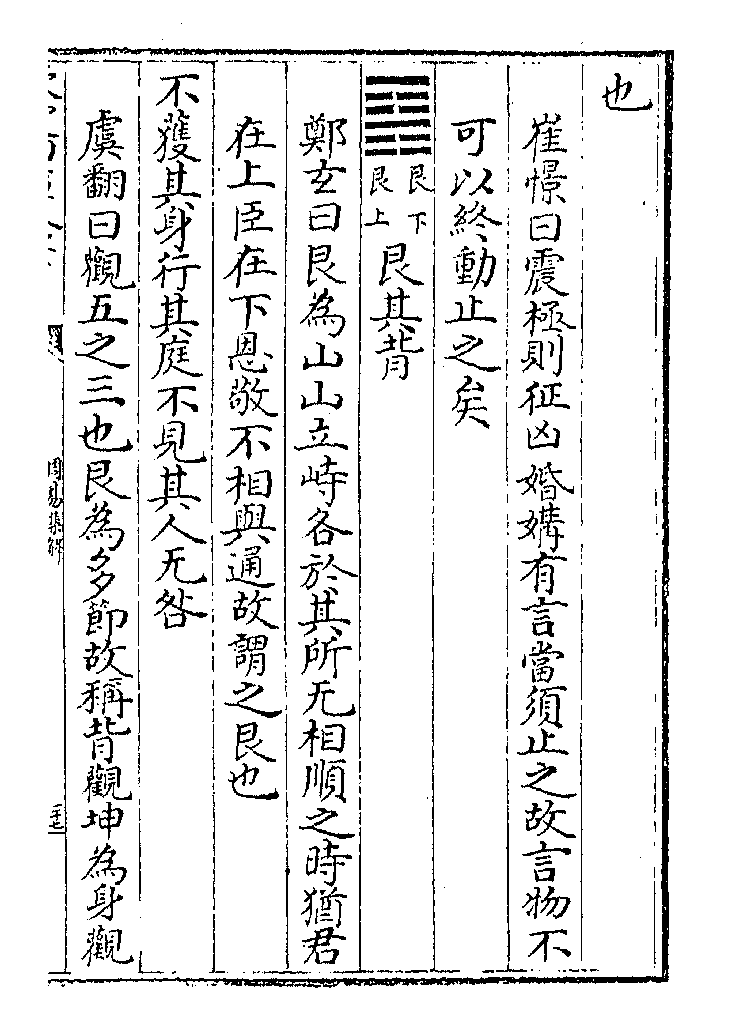 也
崔憬曰震極則征凶婚媾有言當須止之故言物不
可以終動止之矣
䷳艮下艮上艮其背
鄭玄曰艮為山山立峙各於其所无相順之時猶君
在上臣在下恩敬不相與通故謂之艮也
不獲其身行其庭不見其人无咎
虞翻曰觀五之三也艮為多節故稱背觀坤為身觀
周易集解